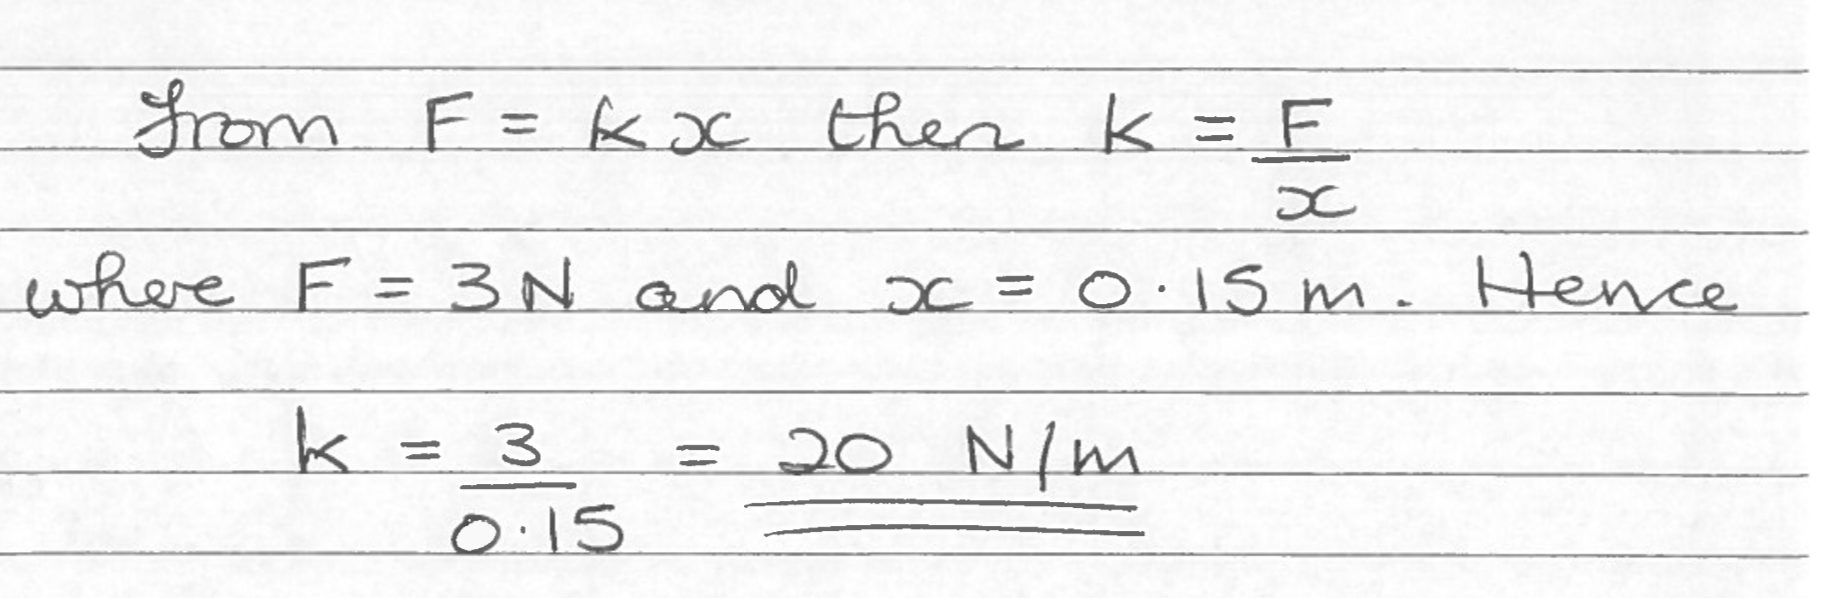 From F = kx then k = F/x
where F = 3N and x = 0.15 m. Hence
k = 3/0.15 = 20 N/m